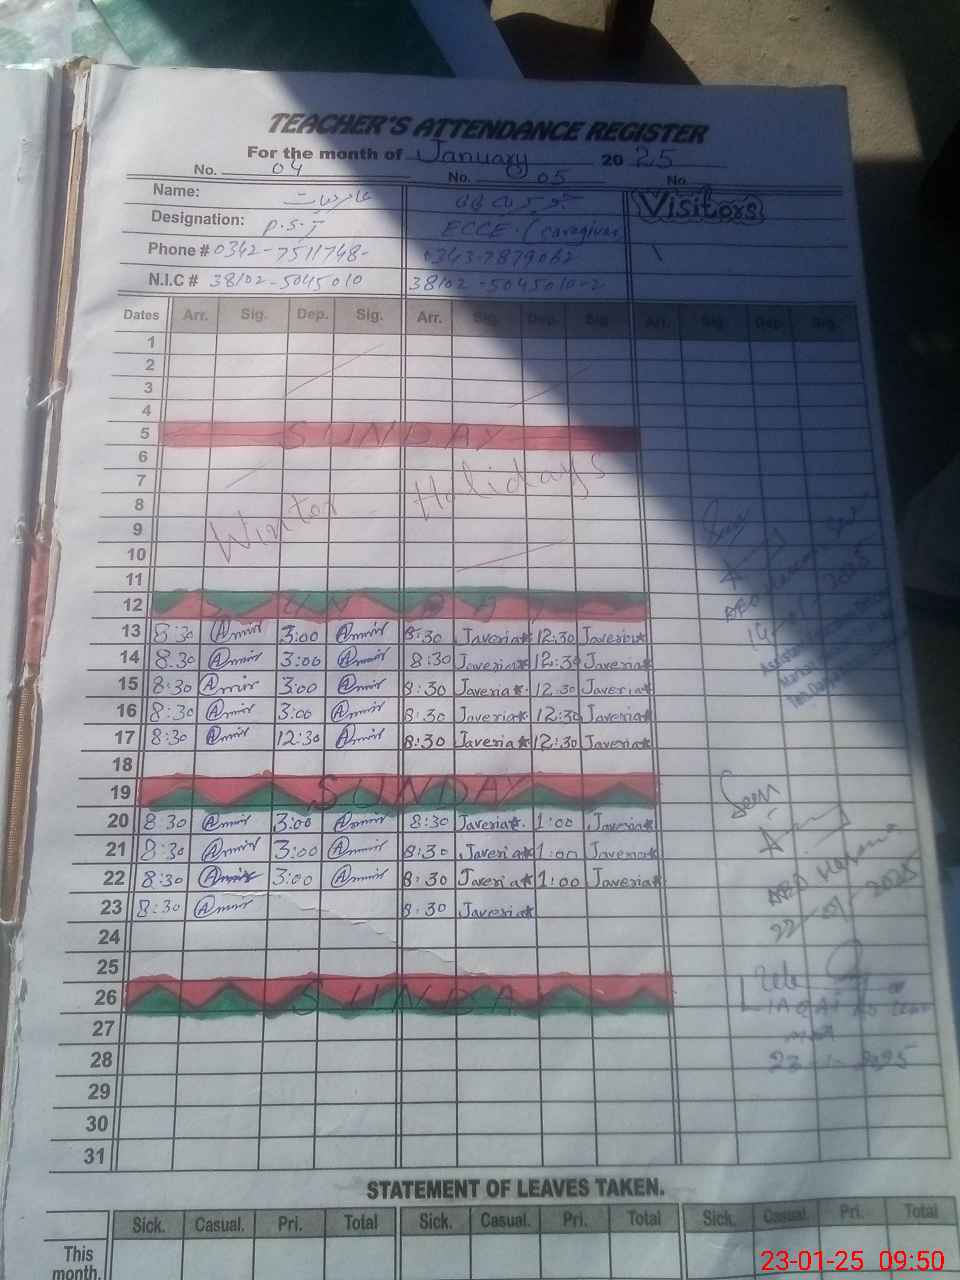 TEACHER'S ATTENDANCE REGISTER
For the month of January 20 25
No. 04 No. 05 No.
Name: Visitors
Designation: P.S.T ECCE. (caregiver
Phone # 0342-7511748- 0343-7879062
N.I.C # 38102-5045010 38102-5045010-2
Dates Arr. Sig. Dep. Sig. Arr. Sig. Dep. Sig. Arr. Sig. Dep. Sig.
1
2
3
4
5 SUNDAY
6
7
8 Winter Holidays
9
10
11
12 SUNDAY
13 8:30 Amir 3:00 Amir 8:30 Javeria 12:30 Javeria
14 8:30 Amir 3:00 Amir 8:30 Javeria 12:30 Javeria
15 8:30 Amir 3:00 Amir 8:30 Javeria 12:30 Javeria
16 8:30 Amir 3:00 Amir 8:30 Javeria 12:30 Javeria
17 8:30 Amir 12:30 Amir 8:30 Javeria 12:30 Javeria
18
19 SUNDAY
20 8:30 Amir 3:00 Amir 8:30 Javeria 1:00 Javeria
21 8:30 Amir 3:00 Amir 8:30 Javeria 1:00 Javeria
22 8:30 Amir 3:00 Amir 8:30 Javeria 1:00 Javeria
23 8:30 Amir 8:30 Javeria
24
25
26 SUNDA
27
28
29
30
31
Seen
AEO
2025
Seen
AEO
22-01-2025
LIAQAT
23-1-2025
STATEMENT OF LEAVES TAKEN.
Sick. Casual. Pri. Total Sick. Casual. Pri. Total Sick. Casual Pri. Total
This
month.
23-01-25 09:50